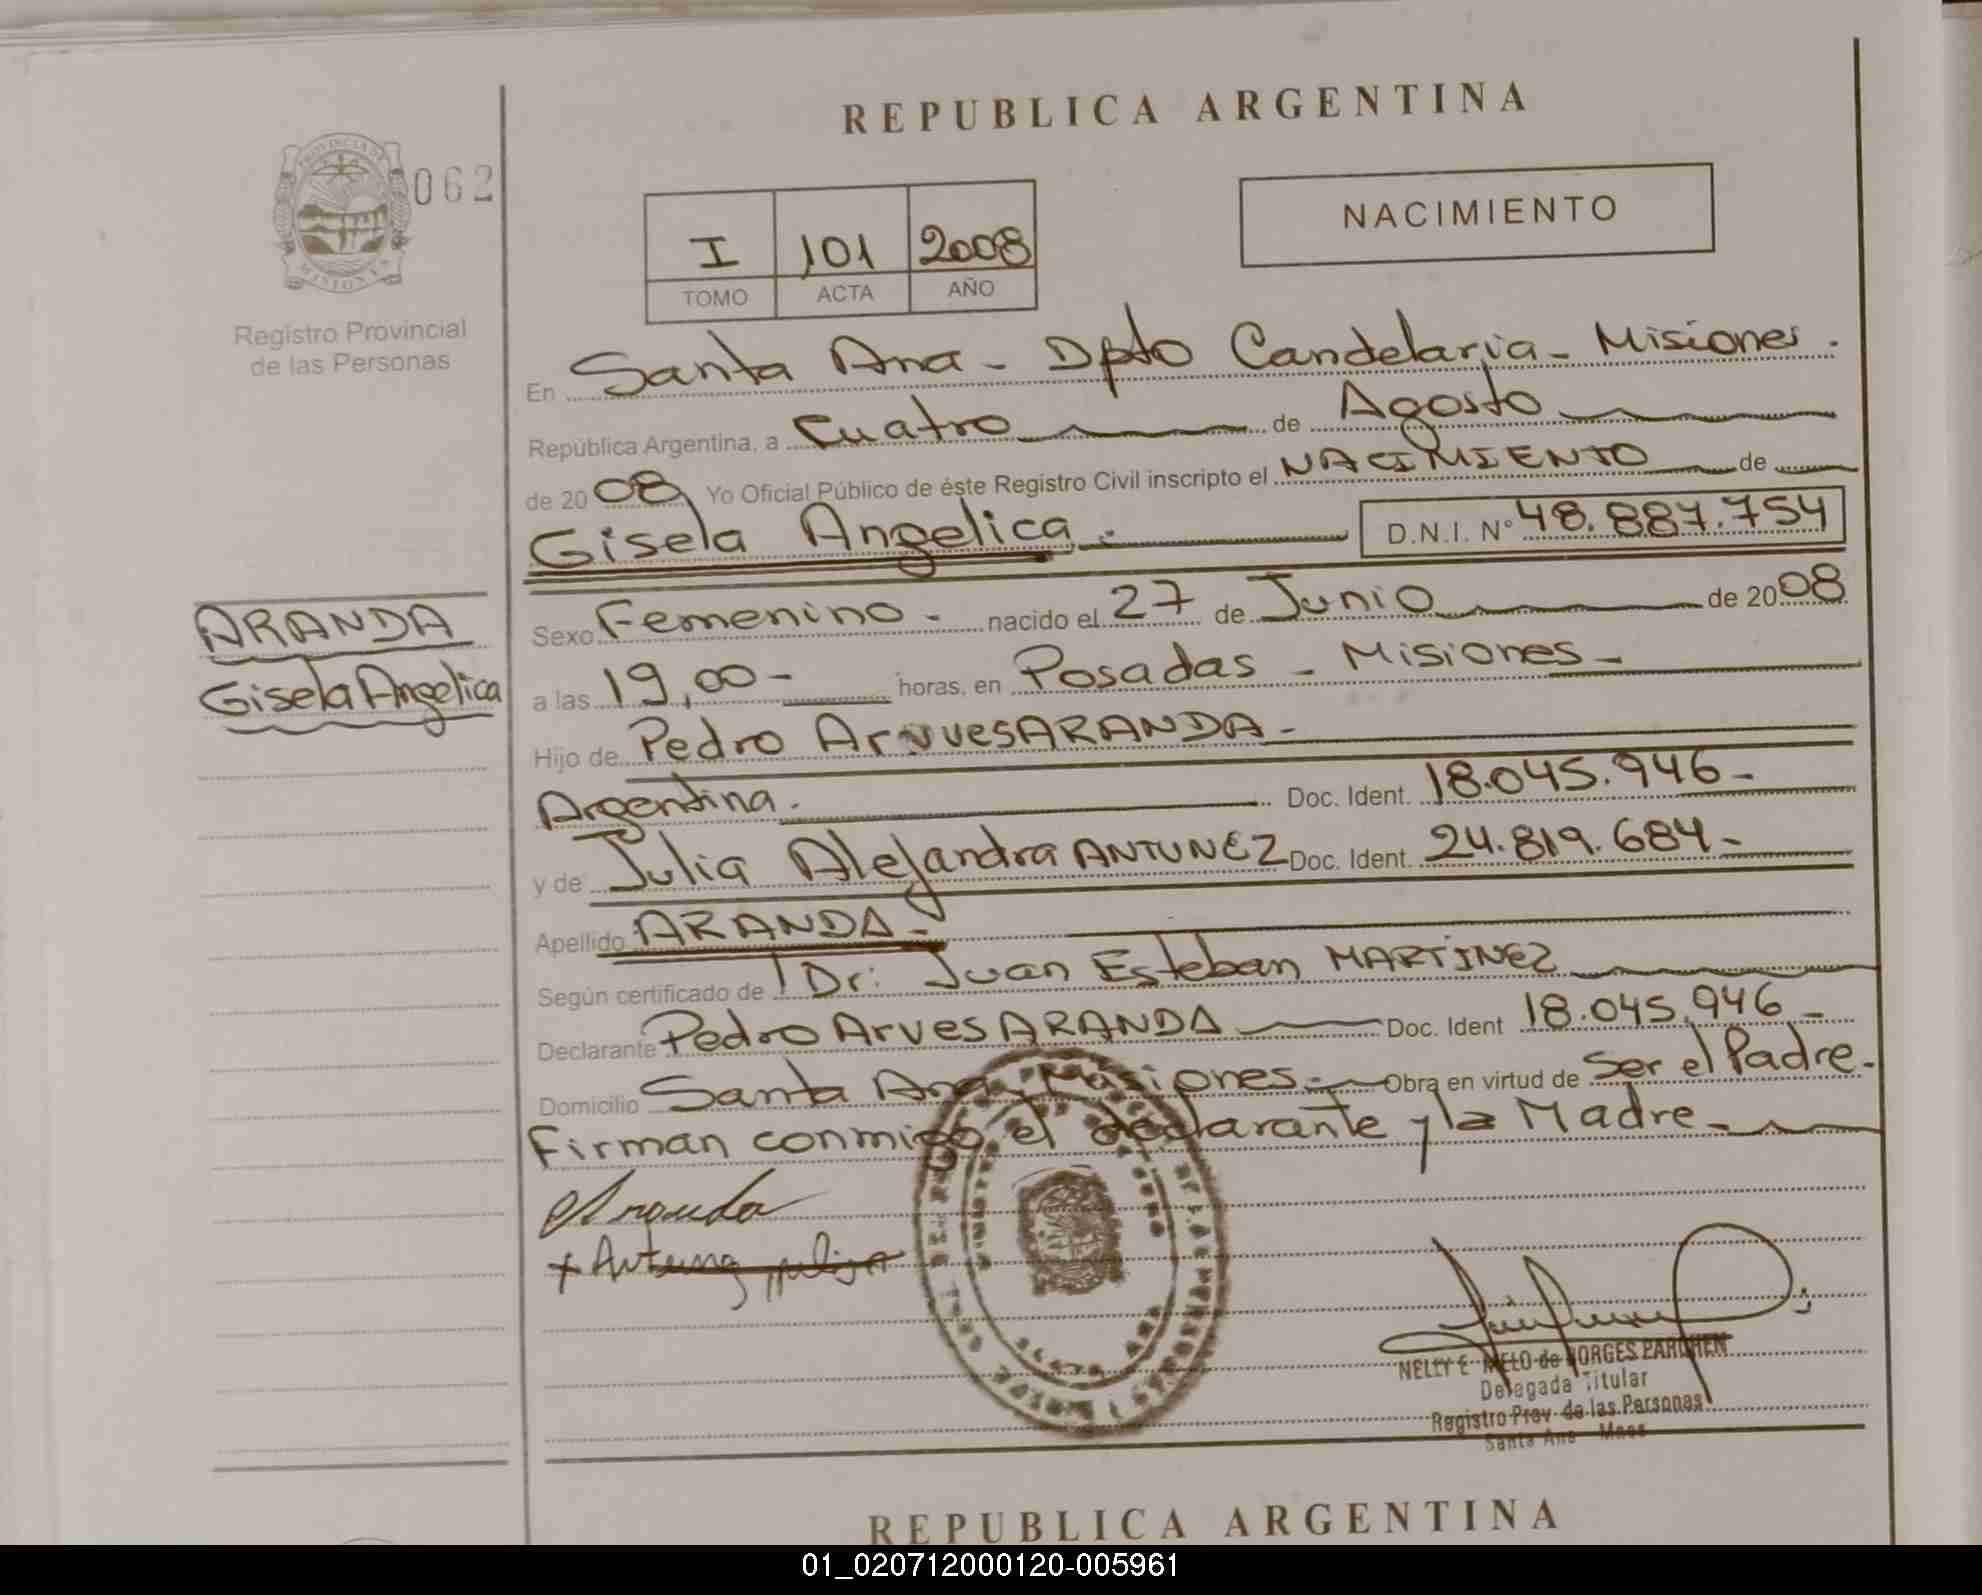 REPUBLICA ARGENTINA
PROVINCIA DE MISIONES
062
Registro Provincial
de las Personas
NACIMIENTO
I 101 2008
TOMO ACTA AÑO
En Santa Ana - Dpto Candelaria - Misiones.
República Argentina, a Cuatro de Agosto
de 2008 Yo Oficial Público de éste Registro Civil inscripto el NACIMIENTO de
Gisela Angelica. D.N.I. Nº 48.887.754
ARANDA
Gisela Angelica
Sexo Femenino - nacido el 27 de Junio de 2008
a las 19,00 - horas, en Posadas - Misiones -
Hijo de Pedro Arvves ARANDA -
Argentina. Doc. Ident. 18.045.946 -
y de Julia Alejandra ANTUNEZ Doc. Ident. 24.819.684 -
Apellido ARANDA -
Según certificado de Dr: Juan Esteban MARTINEZ
Declarante Pedro Arves ARANDA Doc. Ident 18.045.946 -
Domicilio Santa Ana - Misiones - Obra en virtud de Ser el Padre -
Firman conmigo el declarante y la Madre -
Aranda
NELLY E. MELO de BORGES PARCHEN
Delegada Titular
Registro Prov. de las Personas
Santa Ana Mnes
REPUBLICA ARGENTINA
01_020712000120-005961